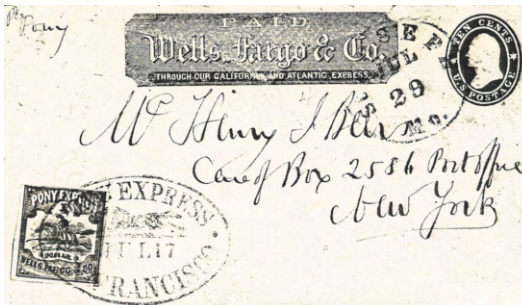 Per
Pony
PAID
Wells, Fargo & Co.
THROUGH OUR CALIFORNIA AND ATLANTIC EXPRESS.
JUL
29
Mo.
TEN CENTS
U.S. POSTAGE
Mr Henry J
Care of Box 2586 Post office
New York
PONY EXPRESS
WELLS, FARGO & CO.
EXPRESS
JUL 17
FRANCISCO